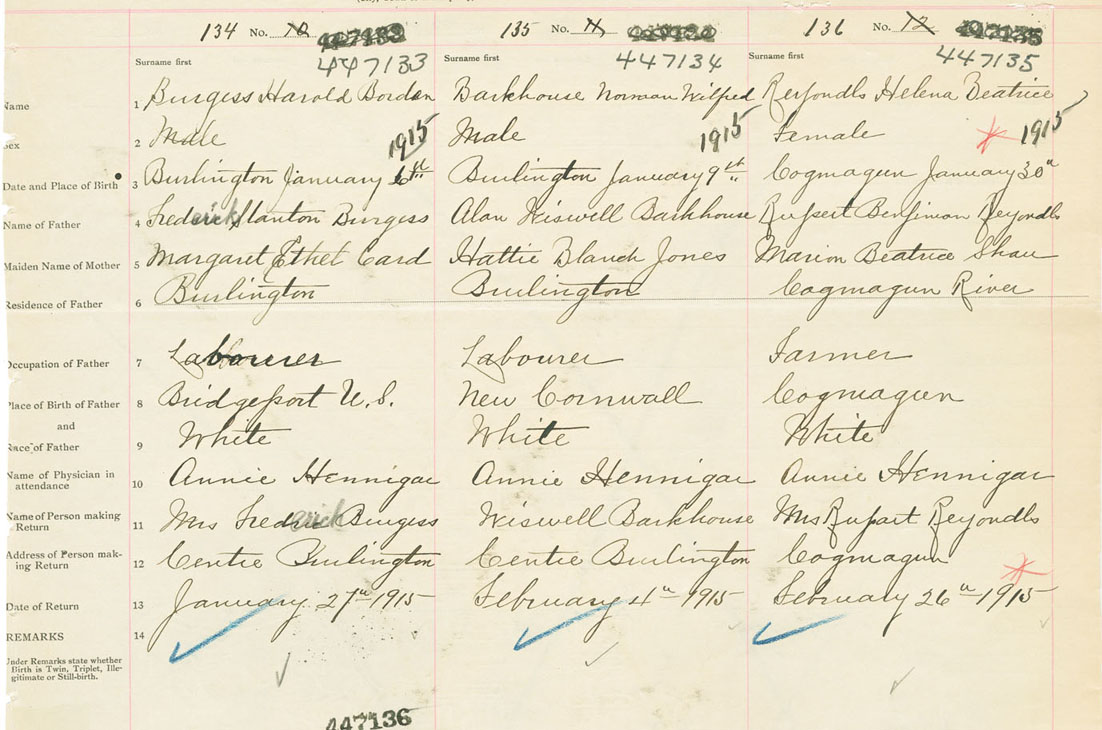 134 No. 10 447132
135 No. 11 447134
136 No. 12 447135
Surname first 447133
Surname first 447134
Surname first 447135
Name 1 Burgess Harold Borden
Barkhouse Norman Wilfred
Reyondls Helena Beatrice
Sex 2 Male 1915
Male 1915
Female 1915
Date and Place of Birth 3 Burlington January 6th
Burlington January 9th
Cogmagun January 30th
Name of Father 4 Frederick Stanton Burgess
Alan Wiswell Barkhouse
Rupert Benjiman Reyondls
Maiden Name of Mother 5 Margaret Ethel Card
Hattie Blanch Jones
Marion Beatrice Shaw
Residence of Father 6 Burlington
Burlington
Cogmagun River
Occupation of Father 7 Labourer
Labourer
Farmer
Place of Birth of Father 8 Bridgeport U.S.
New Cornwall
Cogmagun
and
Race of Father 9 White
White
White
Name of Physician in
attendance 10 Annie Hennigar
Annie Hennigar
Annie Hennigar
Name of Person making
Return 11 Mrs Frederick Burgess
Wiswell Barkhouse
Mrs Rupart Reyondls
Address of Person mak-
ing Return 12 Centre Burlington
Centre Burlington
Cogmagun
Date of Return 13 January 27th 1915
February 4th 1915
February 26th 1915
REMARKS 14
Under Remarks state whether
Birth is Twin, Triplet, Ille-
gitimate or Still-birth.
447136